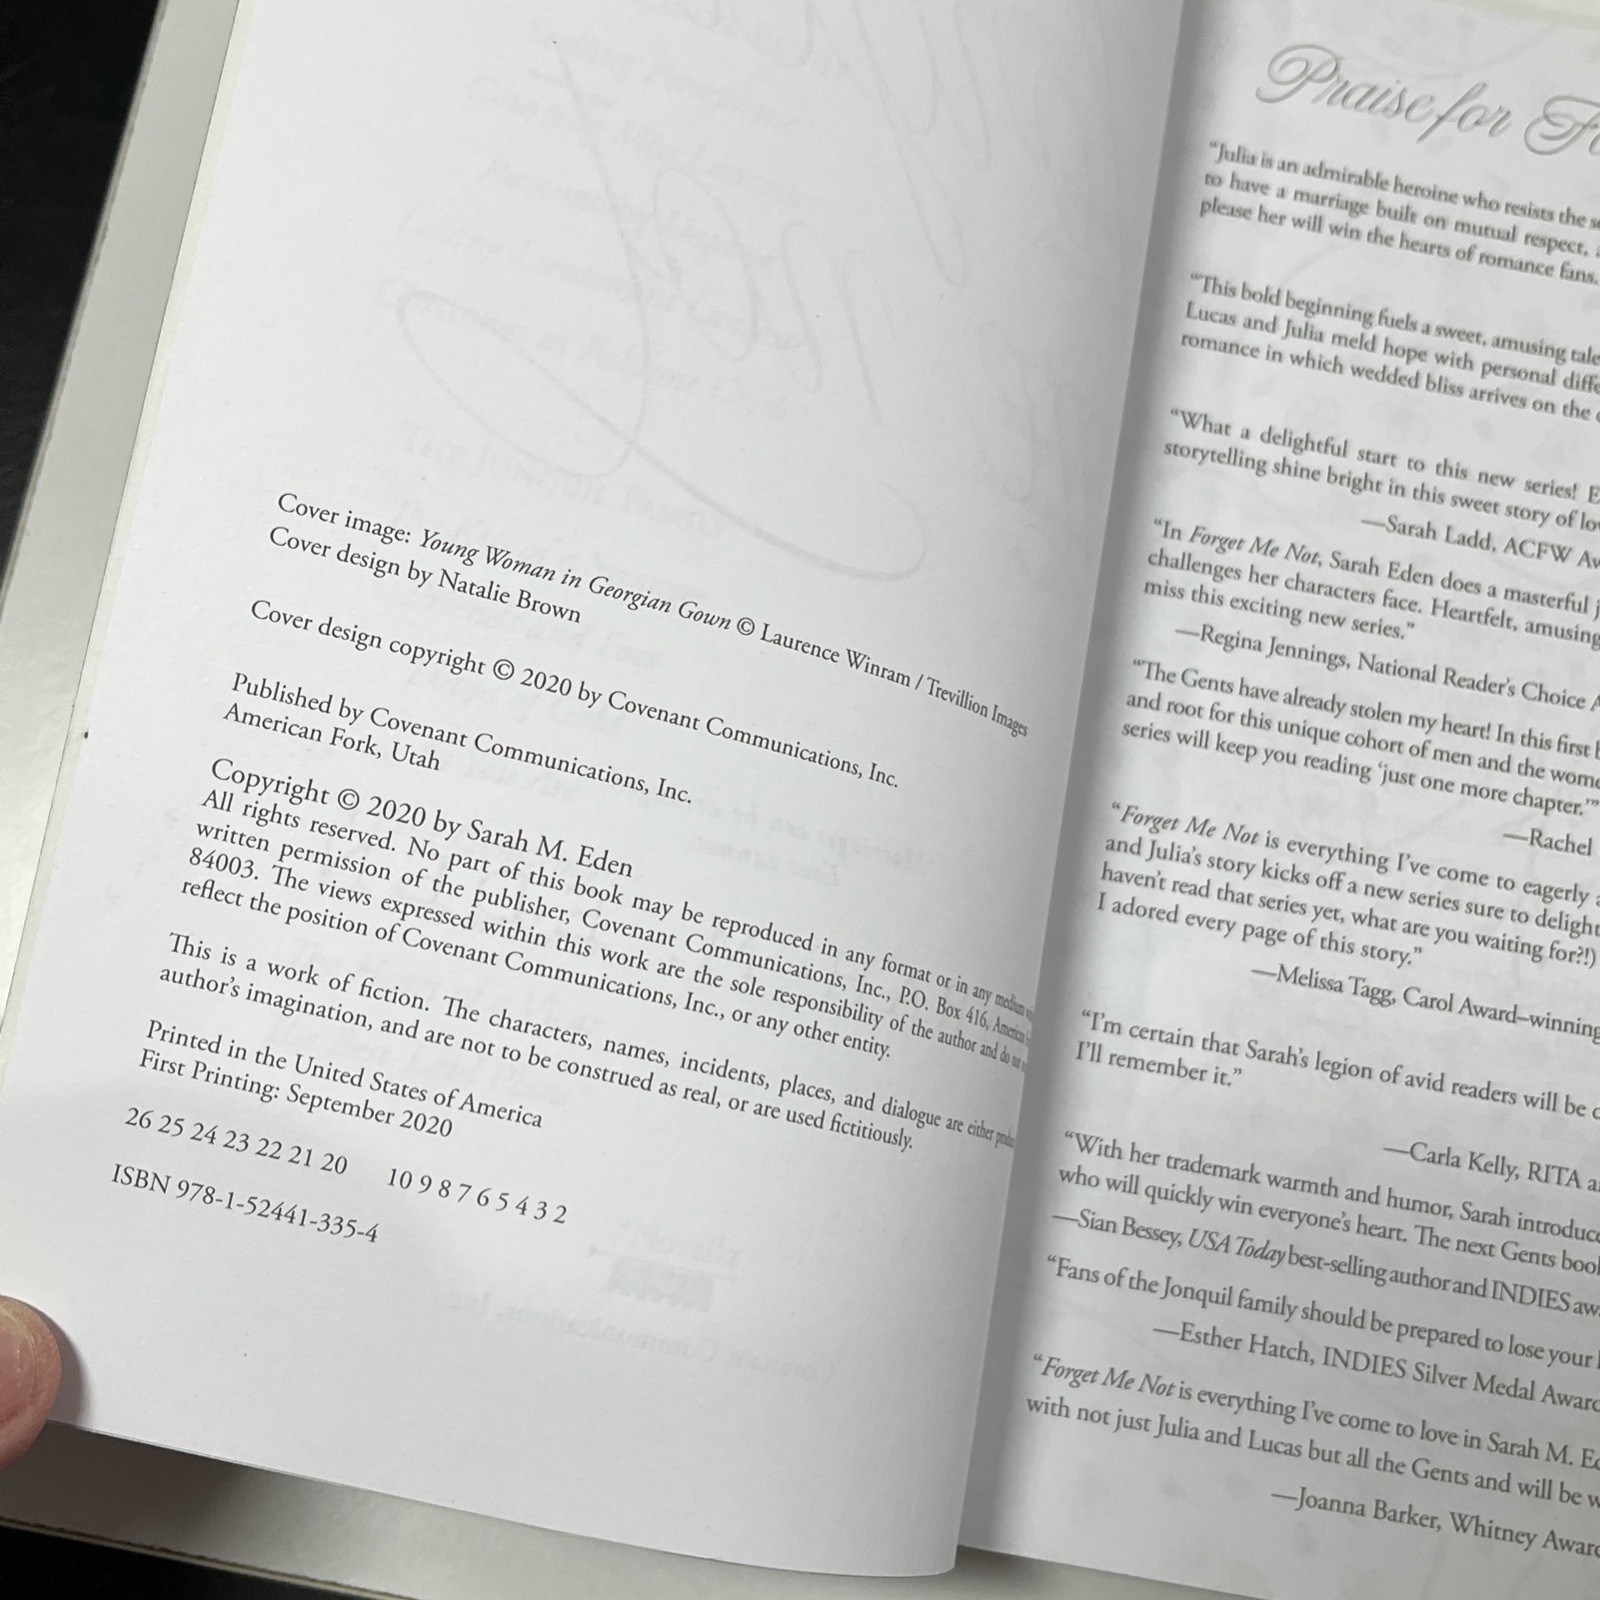 Cover image: Young Woman in Georgian Gown © Laurence Winram / Trevillion Images
Cover design by Natalie Brown
Cover design copyright © 2020 by Covenant Communications, Inc.
Published by Covenant Communications, Inc.
American Fork, Utah
Copyright © 2020 by Sarah M. Eden
All rights reserved. No part of this book may be reproduced in any format or in any medium
written permission of the publisher, Covenant Communications, Inc., P.O. Box 416, American
84003. The views expressed within this work are the sole responsibility of the author and do not
reflect the position of Covenant Communications, Inc., or any other entity.
This is a work of fiction. The characters, names, incidents, places, and dialogue are either
author's imagination, and are not to be construed as real, or are used fictitiously.
Printed in the United States of America
First Printing: September 2020
26 25 24 23 22 21 20 10 9 8 7 6 5 4 3 2
ISBN 978-1-52441-335-4
Praise for
“Julia is an admirable heroine who resists the
to have a marriage built on mutual respect,
please her will win the hearts of romance fans.
“This bold beginning fuels a sweet, amusing tale
Lucas and Julia meld hope with personal
romance in which wedded bliss arrives on the
“What a delightful start to this new series!
storytelling shine bright in this sweet story of
—Sarah Ladd, ACFW
“In Forget Me Not, Sarah Eden does a masterful
challenges her characters face. Heartfelt, amusing
miss this exciting new series.”
—Regina Jennings, National Reader's Choice
“The Gents have already stolen my heart! In this first
and root for this unique cohort of men and the
series will keep you reading ‘just one more chapter.’”
—Rachel
“Forget Me Not is everything I've come to eagerly
and Julia's story kicks off a new series sure to delight
haven't read that series yet, what are you waiting for?!)
I adored every page of this story.”
—Melissa Tagg, Carol Award–winning
“I'm certain that Sarah's legion of avid readers will be
I'll remember it.”
—Carla Kelly, RITA
“With her trademark warmth and humor, Sarah
who will quickly win everyone's heart. The next Gents
—Sian Bessey, USA Today best-selling author and INDIES
“Fans of the Jonquil family should be prepared to lose your
—Esther Hatch, INDIES Silver Medal
“Forget Me Not is everything I've come to love in Sarah M.
with not just Julia and Lucas but all the Gents and will be
—Joanna Barker, Whitney